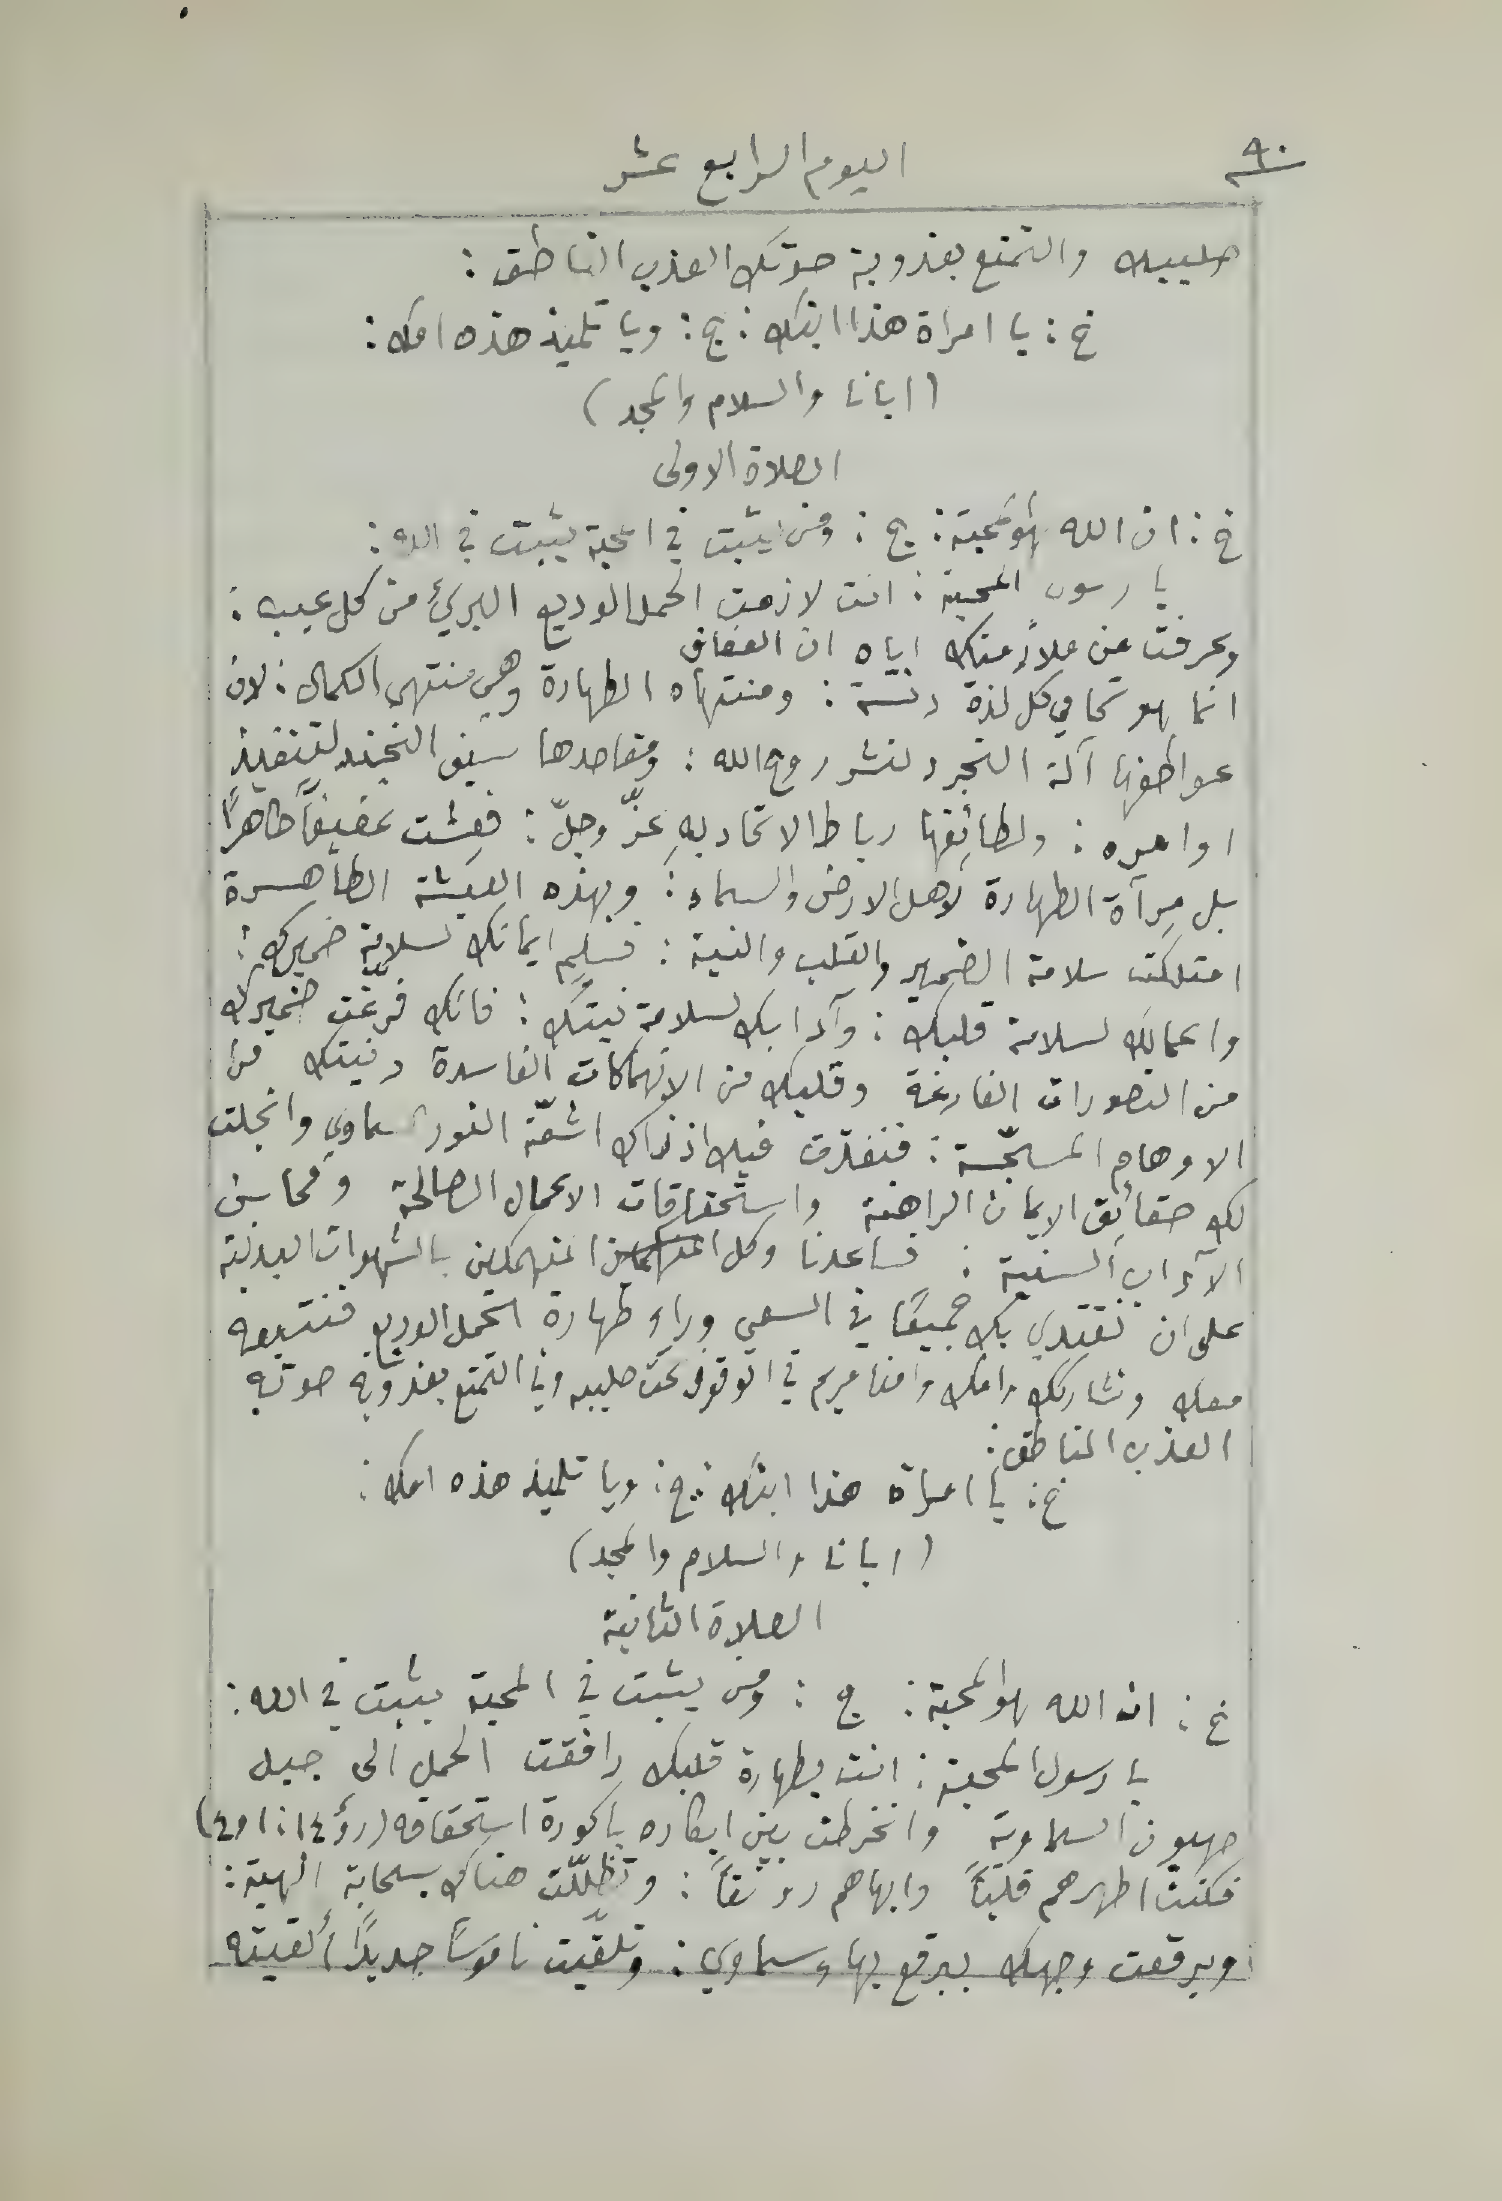 ٩٠
اليوم الرابع عشر
صليبك والتمتع بعذوبة صوتك العذب الناطق :
خ : يا امراة هذا ابنك : ج : ويا تلميذ هذه امك :
( ابانا والسلام والمجد )
الصلاة الاولى
خ : ان الله هو المحبة : ج : ومن يثبت في المحبة يثبت في الله :
يا رسول المحبة : انت لازمت الحمل الوديع البريّ من كل عيب :
وعرفت من ملازمتك اياه ان العفاف
انما هو تحامي كل لذة دنسة : ومنتهاه الطهارة وهي منتهى الكمال : لان
عواطفها آلة التجرد لنشر روح الله : ومقاصدها سيف التجند لتنفيذ
اوامره : ولطائفها رباط الاتحاد بهِ عزّ وجلّ : فعشت عفيفاً طاهراً
بل مِرآة الطهارة لاهل الارض والسماء : وبهذه العيشة الطاهرة
امتلكت سلامة الضمير والقلب والنية : فسَلِم ايمانك لسلامة ضميرك :
واعمالك لسلامة قلبك : وآدابك لسلامة نيتك : فانك فرّغت ضميرك
من التصورات الفارغة وقلبك من الانهماكات الفاسدة ونيتك من
الاوهام المسجّسة : فنفذت فيك اذ ذاك اشعّة النور السماوي وانجلت
لك حقائق الايمان الراهنة واستحقاقات الاعمال الصالحة ومحاسن
الآداب السنية : فساعدنا وكل المنهمكين بالشهوات البدنية
على ان نقتدي بك جميعاً في السعي وراء طهارة الحمل الوديع فنتبعه
معك ونشاركك وامك وامنا مريم في الوقوف تحت صليبه وفي التمتع بعذوبة صوته
العذب الناطق :
خ : يا امراة هذا ابنك : ج : ويا تلميذ هذه امك :
( ابانا والسلام والمجد )
الصلاة الثانية
خ : ان الله هو المحبة : ج : ومن يثبت في المحبة يثبت في الله :
يا رسول المحبة : انت بطهارة قلبك رافقت الحمل الى جبل
صهيون السماوية وانخرطت بين ابكاره باكورة استحقاقه (رؤ ١٤ : ١ و٤)
فكنت اطهرهم قلباً وابهاهم رونقاً : وتظللّت هناك بسحابة الهية :
وبرقعت وجهك ببرقع بهاء سماوي : وتلقّيت ناموساً جديداً ألقيته